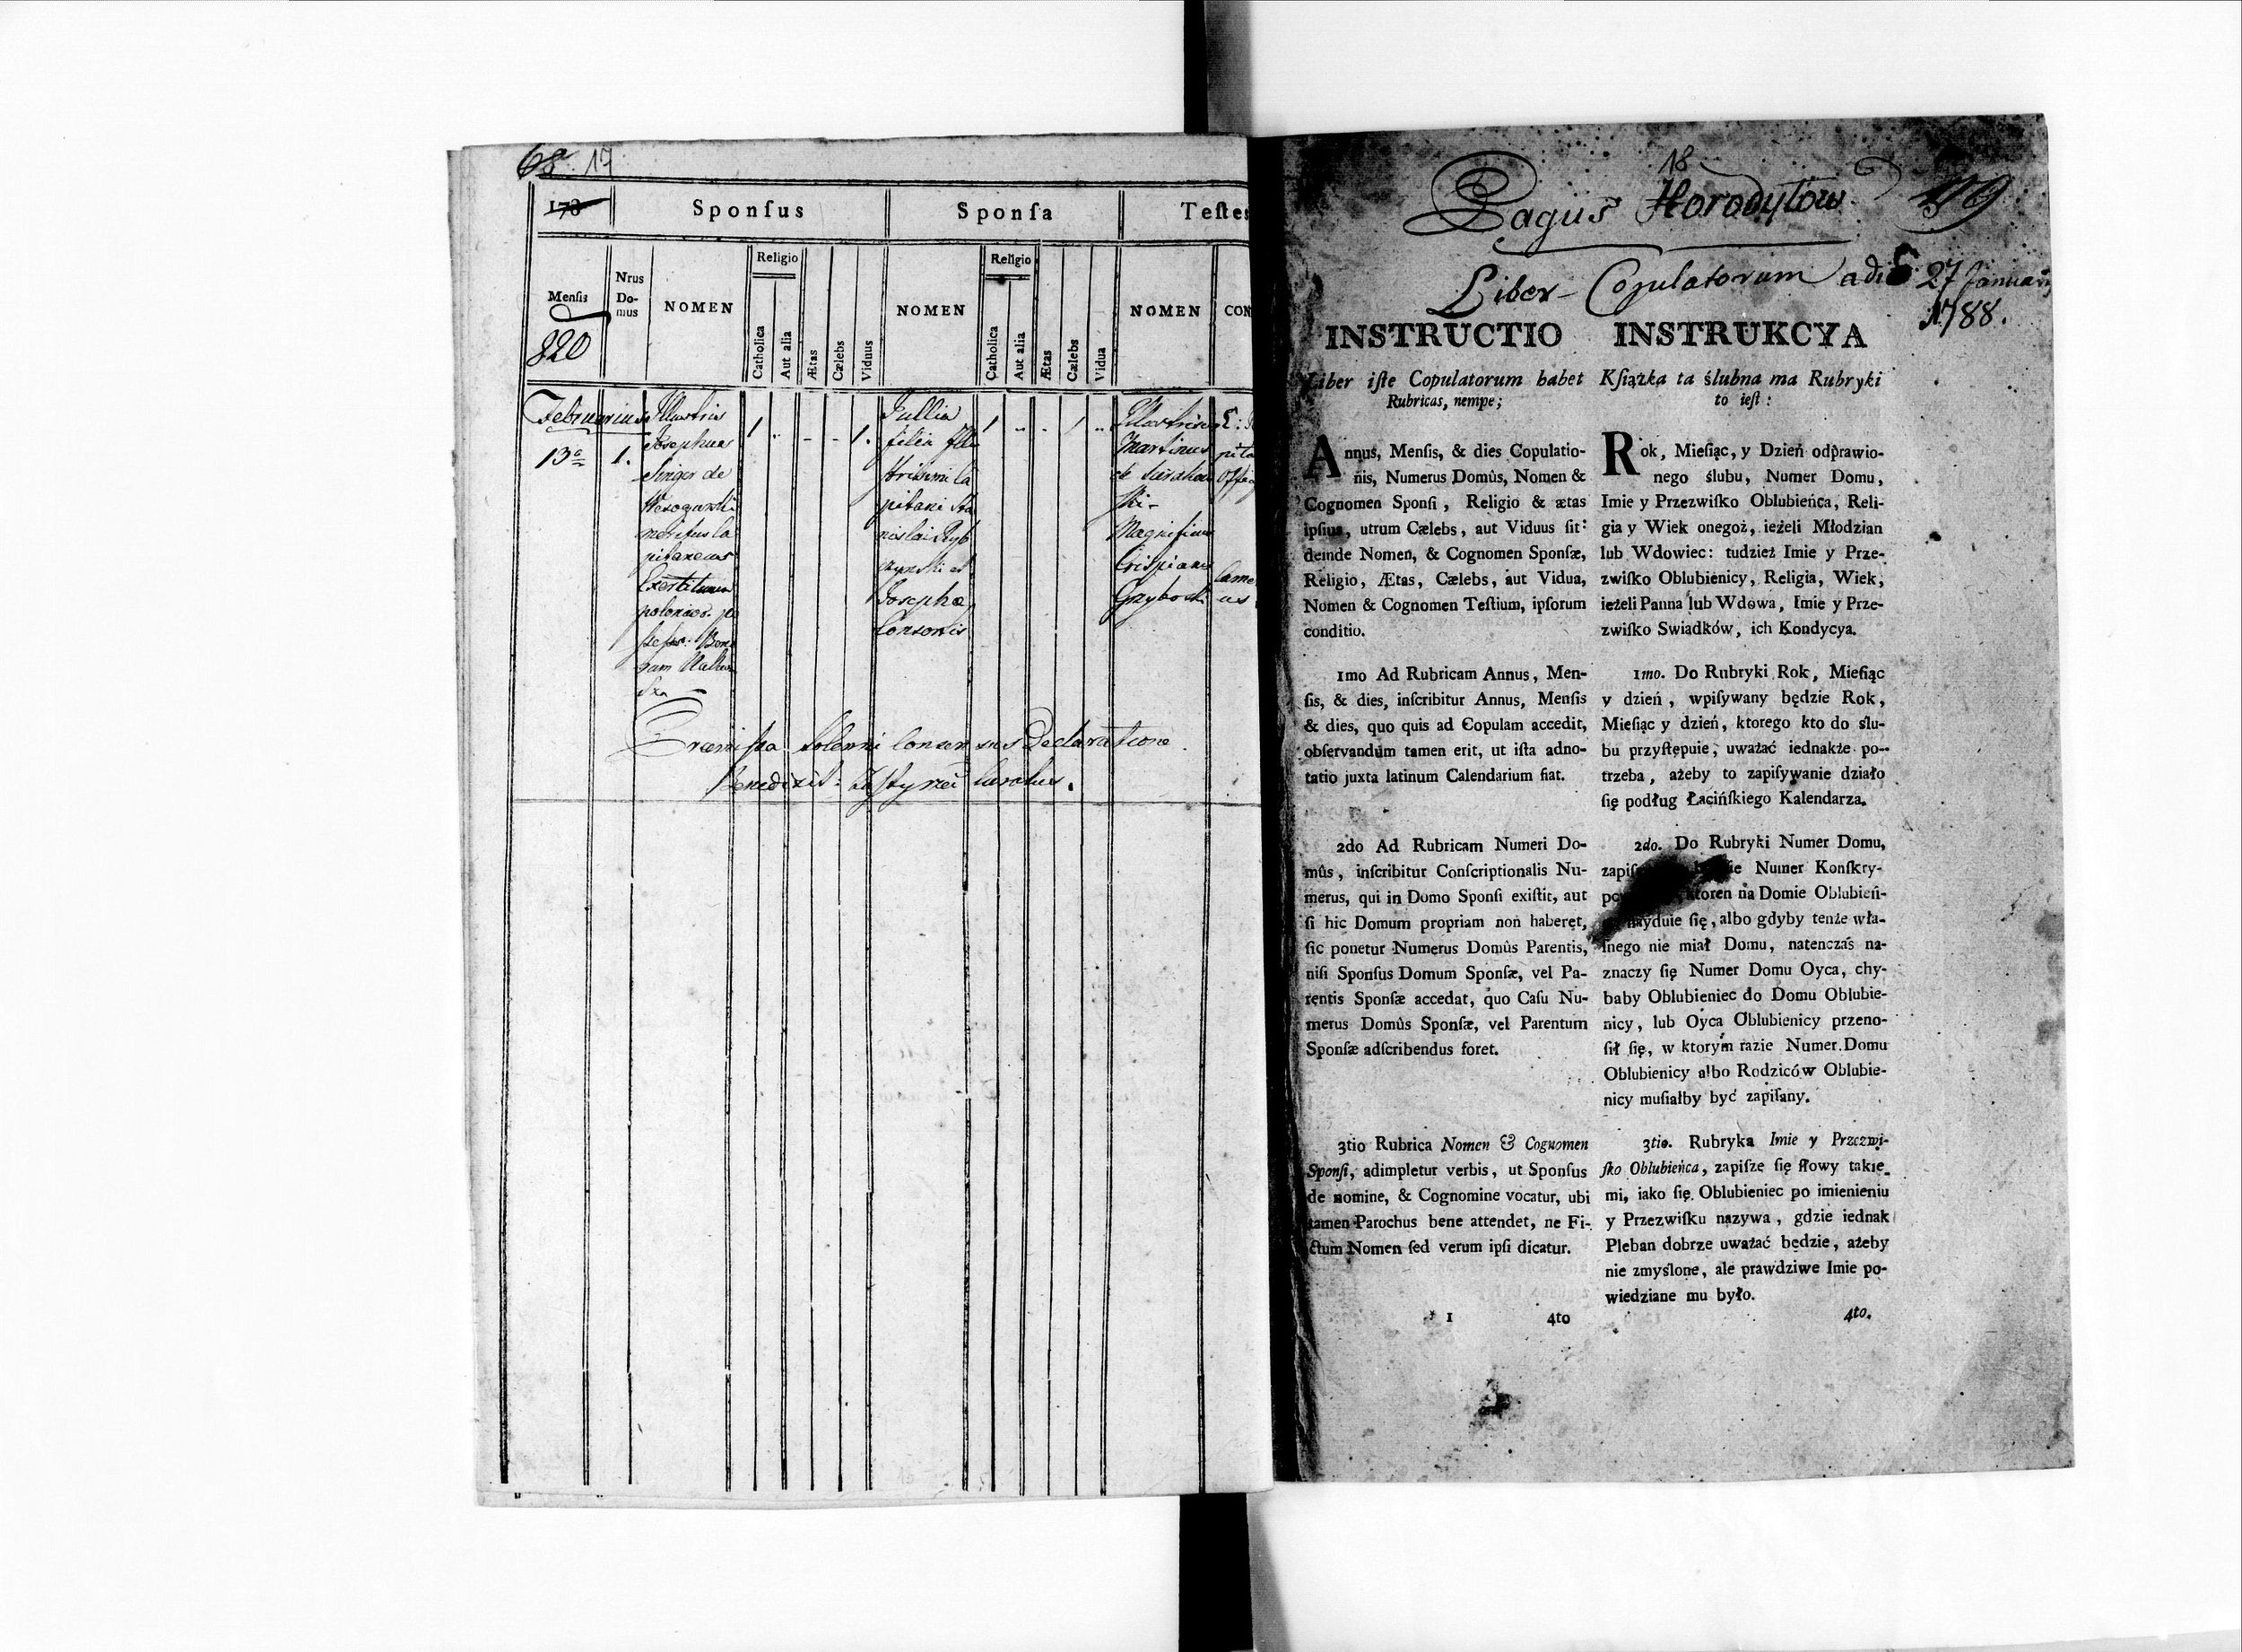 68. 17
173
Sponſus
Sponſa
Teſtes
Menſis
820
Nrus
Do-
mus
NOMEN
Religio
Catholica
Aut alia
Ætas
Cælebs
Viduus
NOMEN
Religio
Catholica
Aut alia
Ætas
Cælebs
Vidua
NOMEN
CON
Februarius
13a
1.
Illustris
Josephus
Singer de
meritus Ca
pitaneus
polonicos
1
1.
Jullia
filia Illu
pitanei Sta
nislai
et
Josepha
Consortis
1
1
Martinus
ski
Magnificus
Crispianus
Grzyboski
Præmissa Solemni Consensus Declaratione
Benedixit: Curatus.
18
Pagus Horodytow
Liber Copulatorum a die 27 Januarii
1788.
INSTRUCTIO
Liber iſte Copulatorum habet
Rubricas, nempe;
Annus, Menſis, & dies Copulatio-
nis, Numerus Domûs, Nomen &
Cognomen Sponſi, Religio & ætas
ipſius, utrum Cælebs, aut Viduus ſit:
deinde Nomen, & Cognomen Sponſæ,
Religio, Ætas, Cælebs, aut Vidua,
Nomen & Cognomen Teſtium, ipſorum
conditio.
1mo Ad Rubricam Annus, Men-
ſis, & dies, inſcribitur Annus, Menſis
& dies, quo quis ad Copulam accedit,
obſervandum tamen erit, ut iſta adno-
tatio juxta latinum Calendarium fiat.
2do Ad Rubricam Numeri Do-
mûs, inſcribitur Conſcriptionalis Nu-
merus, qui in Domo Sponſi exiſtit, aut
ſi hic Domum propriam non haberet,
ſic ponetur Numerus Domûs Parentis,
niſi Sponſus Domum Sponſæ, vel Pa-
rentis Sponſæ accedat, quo Caſu Nu-
merus Domûs Sponſæ, vel Parentum
Sponſæ adſcribendus foret.
3tio Rubrica Nomen & Cognomen
Sponſi, adimpletur verbis, ut Sponſus
de nomine, & Cognomine vocatur, ubi
tamen Parochus bene attendet, ne Fi-
ctum Nomen ſed verum ipſi dicatur.
* 1
4to
INSTRUKCYA
Kſiążka ta ślubna ma Rubryki
to ieſt:
Rok, Mieſiąc, y Dzień odprawio-
nego ślubu, Numer Domu,
Imie y Przezwiſko Oblubieńca, Reli-
gia y Wiek onegoż, ieżeli Młodzian
lub Wdowiec: tudzież Imie y Prze-
zwiſko Oblubienicy, Religia, Wiek,
ieżeli Panna lub Wdowa, Imie y Prze-
zwiſko Swiadków, ich Kondycya.
1mo. Do Rubryki Rok, Mieſiąc
y dzień, wpiſywany będzie Rok,
Mieſiąc y dzień, ktorego kto do ślu-
bu przyſtępuie, uważać iednakże po-
trzeba, ażeby to zapiſywanie działo
się podług Łacińſkiego Kalendarza.
2do. Do Rubryki Numer Domu,
Numer Konſkry-
ktoren na Domie Oblubień-
ſię, albo gdyby tenże wła-
ſnego nie miał Domu, natenczás na-
znaczy ſię Numer Domu Oyca, chy-
baby Oblubieniec do Domu Oblubie-
nicy, lub Oyca Oblubienicy przeno-
ſił ſię, w ktorym razie Numer Domu
Oblubienicy albo Rodziców Oblubie-
nicy muſiałby być zapiſany.
3tio. Rubryka Imie y Przezwi-
ſko Oblubieńca, zapiſze ſię ſłowy takie-
mi, iako ſię Oblubieniec po imienieniu
y Przezwiſku nazywa, gdzie iednak
Pleban dobrze uważać będzie, ażeby
nie zmyślone, ale prawdziwe Imie po-
wiedziane mu było.
4to.